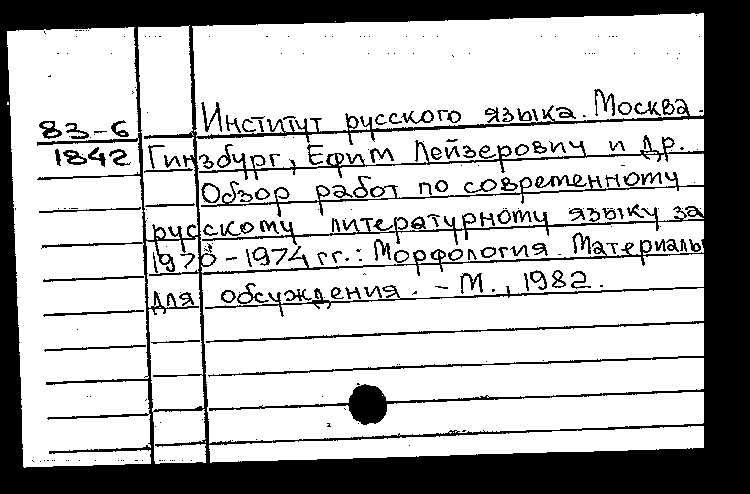 Институт русского языка. Москва.
83-6
1842 Гинзбург, Ефим Лейзерович и др.
Обзор работ по современному
русскому литературному языку за
1970-1974 гг.: Морфология. Материалы
для обсуждения. - М., 1982.